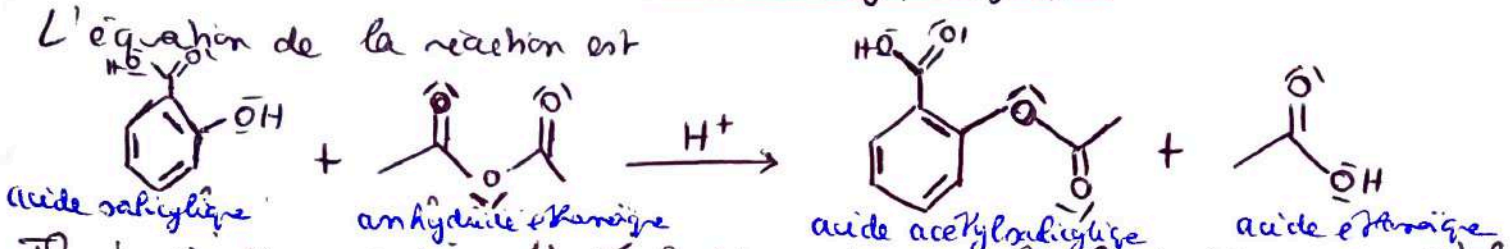 L'équation de la réaction est
HO O OH + O O O H+ HO O O O + O OH
acide salicylique anhydride éthanoïque acide acétylsalicylique acide éthanoïque